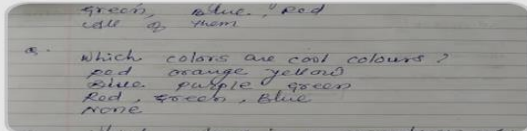 Green, Blue, Red
All of them
Q. Which colors are cool colours?
Red orange yellow
Blue purple green
Red, Green, Blue
None